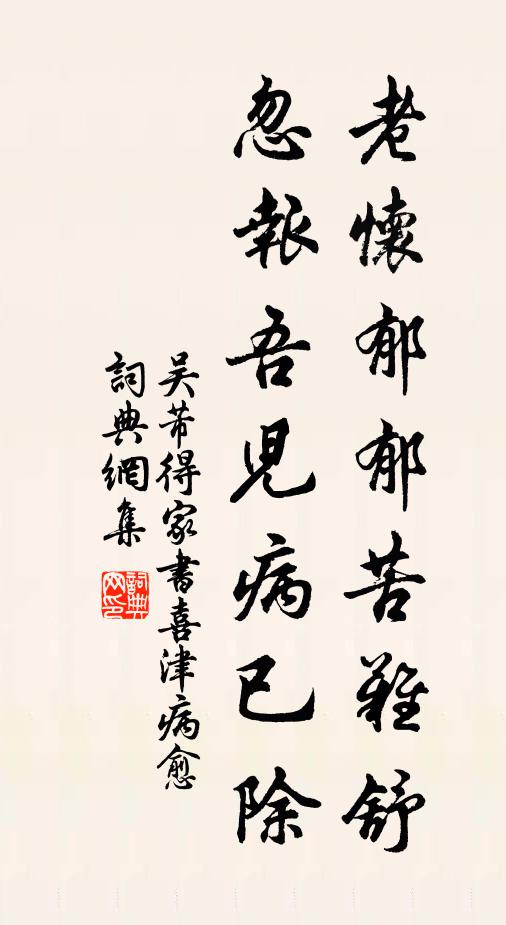 老懷郁郁苦難舒
忽報吾児病已除
吴芾得家書喜津病愈
詞典網集
詞典网印